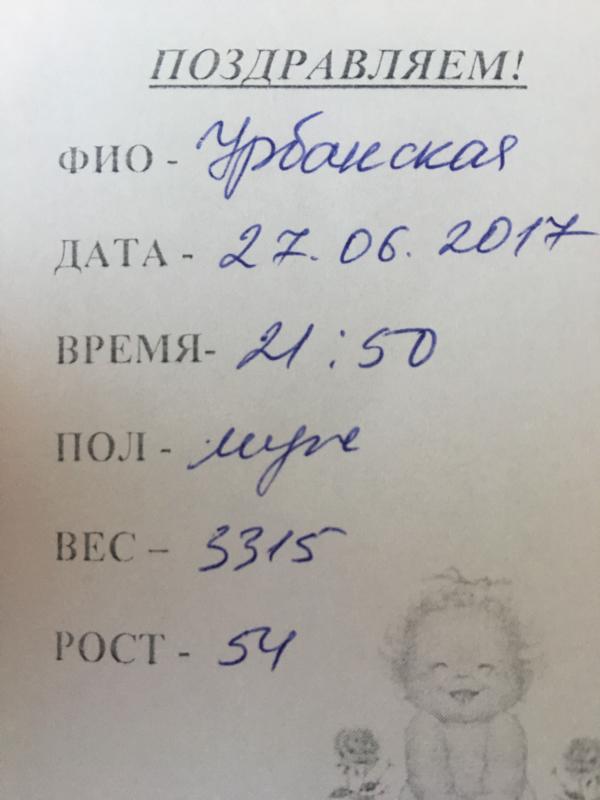 ПОЗДРАВЛЯЕМ!
ФИО - Урбанская
ДАТА - 27.06.2017
ВРЕМЯ- 21:50
ПОЛ - муж
ВЕС – 3315
РОСТ - 54